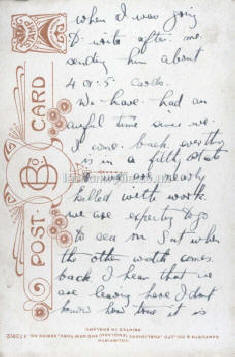 when I was going
to write after me
sending him about
4 or 5 cards.
We have had an
awful time since we
come back everything
is in a filthy state
we are nearly
killed with work
we are expecting to go
to sea on Sat when
the other watch comes
back I hear that we
are leaving here I dont
know how true it is
POST CARD